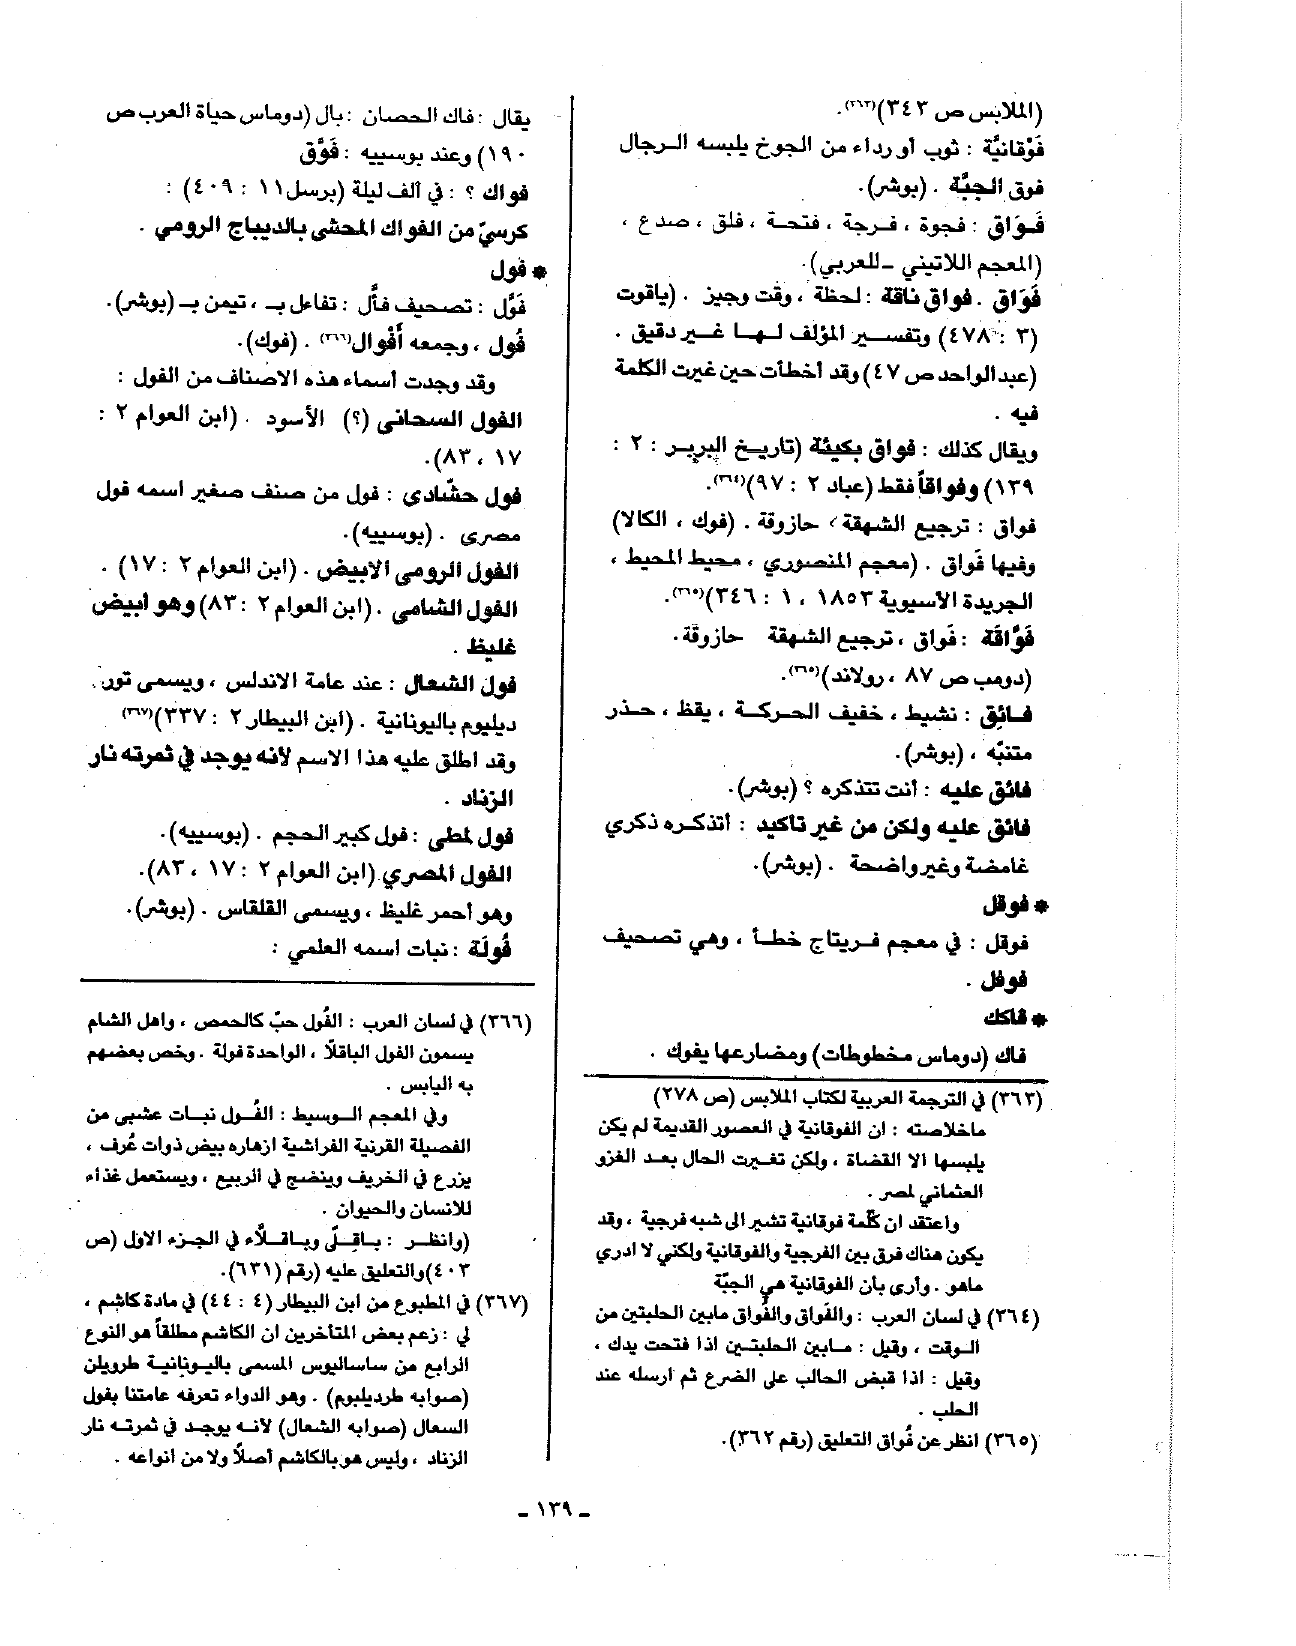 (الملابس ص ٣٤٢)(٣٦٣).
فَوْقانيَّة : ثوب أو رداء من الجوخ يلبسه الرجال
فوق الجبَّة . (بوشر).
فَوَاق : فجوة ، فرجة ، فتحة ، فلق ، صدع ،
(المعجم اللاتيني ــ للعربي).
فَوَاق . فواق ناقة : لحظة ، وقت وجيز . (ياقوت
٣ : ٤٧٨) وتفسير المؤلف لها غير دقيق .
(عبد الواحد ص ٤٧) وقد أخطأت حين غيرت الكلمة
فيه .
ويقال كذلك : فواق بكيئة (تاريخ البربر : ٢ :
١٣٩) وفواقاً فقط (عباد ٢ : ٩٧)(٣٦٤).
فواق : ترجيع الشهقة ، حازوقة . (فوك ، الكالا)
وفيها فَواق . (معجم المنصوري ، محيط المحيط ،
الجريدة الاسيوية ١٨٥٣ ، ١ : ٣٤٦)(٣٦٥).
فَوَّاقَة : فَواق ، ترجيع الشهقة حازوقة.
(دومب ص ٨٧ ، رولاند)(٣٦٥).
فائِق : نشيط ، خفيف الحركة ، يقظ ، حذر
متنبّه ، (بوشر).
فائق عليه : أنت تتذكره ؟ (بوشر).
فائق عليه ولكن من غير تاكيد : أتذكره ذكرى
غامضة وغير واضحة . (بوشر).
* فوقل
فوقل : في معجم فريتاج خطأ ، وهي تصحيف
فوفل .
* فاكك
فاك (دوماس مخطوطات) ومضارعها يفوك .
(٣٦٣) في الترجمة العربية لكتاب الملابس (ص ٢٧٨)
ماخلاصته : ان الفوقانية في العصور القديمة لم يكن
يلبسها الا القضاة ، ولكن تغيرت الحال بعد الغزو
العثماني لمصر .
واعتقد ان كلمة فوقانية تشير الى شبه فرجية ، وقد
يكون هناك فرق بين الفرجية والفوقانية ولكني لا ادري
ماهو . وأرى بأن الفوقانية هي الجبّة
(٣٦٤) في لسان العرب : والفَواق والفُواق مابين الحلبتين من
الوقت ، وقيل : مابين الحلبتين اذا فتحت يدك ،
وقيل : اذا قبض الحالب على الضرع ثم ارسله عند
الحلب .
(٣٦٥) انظر عن فُواق التعليق (رقم ٣٦٢).
يقال : فاك الحصان : بال (دوماس حياة العرب ص
١٩٠) وعند بوسييه : فَوَّق
فواك ؟ : في ألف ليلة (برسل ١١ : ٤٠٩) :
كرسيّ من الفواك المحشى بالديباج الرومي .
* فول
فَوَّل : تصحيف فأَّل : تفاءل بـ ، تيمن بـ (بوشر).
فُول ، وجمعه أَفْوال(٣٦٦) . (فوك).
وقد وجدت أسماء هذه الاصناف من الفول :
الفول السحانى (؟) الأسود . (ابن العوام ٢ :
١٧ ، ٨٣).
فول حشّادي : فول من صنف صغير اسمه فول
مصرى . (بوسييه).
الفول الرومى الابيض . (ابن العوام ٢ : ١٧) .
الفول الشامى . (ابن العوام ٢ : ٨٣) وهو أبيض
غليظ .
فول الشعال : عند عامة الاندلس ، ويسمى تور
ديليوم باليونانية . (ابن البيطار ٢ : ٣٣٧)(٣٦٧)
وقد اطلق عليه هذا الاسم لأنه يوجد في ثمرته نار
الزناد .
فول لمطى : فول كبير الحجم . (بوسييه).
الفول المصري (ابن العوام ٢ : ١٧ ، ٨٣).
وهو أحمر غليظ ، ويسمى القلقاس . (بوشر).
فُولَة : نبات اسمه العلمي :
(٣٦٦) في لسان العرب : الفُول حبّ كالحمص ، واهل الشام
يسمون الفول الباقلّا ، الواحدة فولة . وخص بعضهم
به اليابس .
وفي المعجم الوسيط : الفُول نبات عشبي من
الفصيلة القرنية الفراشية ازهاره بيض ذوات عُرف ،
يزرع في الخريف وينضج في الربيع ، ويستعمل غذاء
للانسان والحيوان .
(وانظر : باقلّى وباقلاّء في الجزء الاول (ص
٤٠٣) والتعليق عليه (رقم ٦٣١).
(٣٦٧) في المطبوع من ابن البيطار (٤ : ٤٤) في مادة كاشم ،
لي : زعم بعض المتأخرين ان الكاشم مطلقاً هو النوع
الرابع من ساساليوس المسمى باليونانية طرويلن
(صوابه طرديليوم) . وهو الدواء تعرفه عامتنا بفول
السعال (صوابه الشعال) لانه يوجد في ثمرته نار
الزناد ، وليس هو بالكاشم أصلاً ولا من انواعه .
ــ ١٣٩ ــ